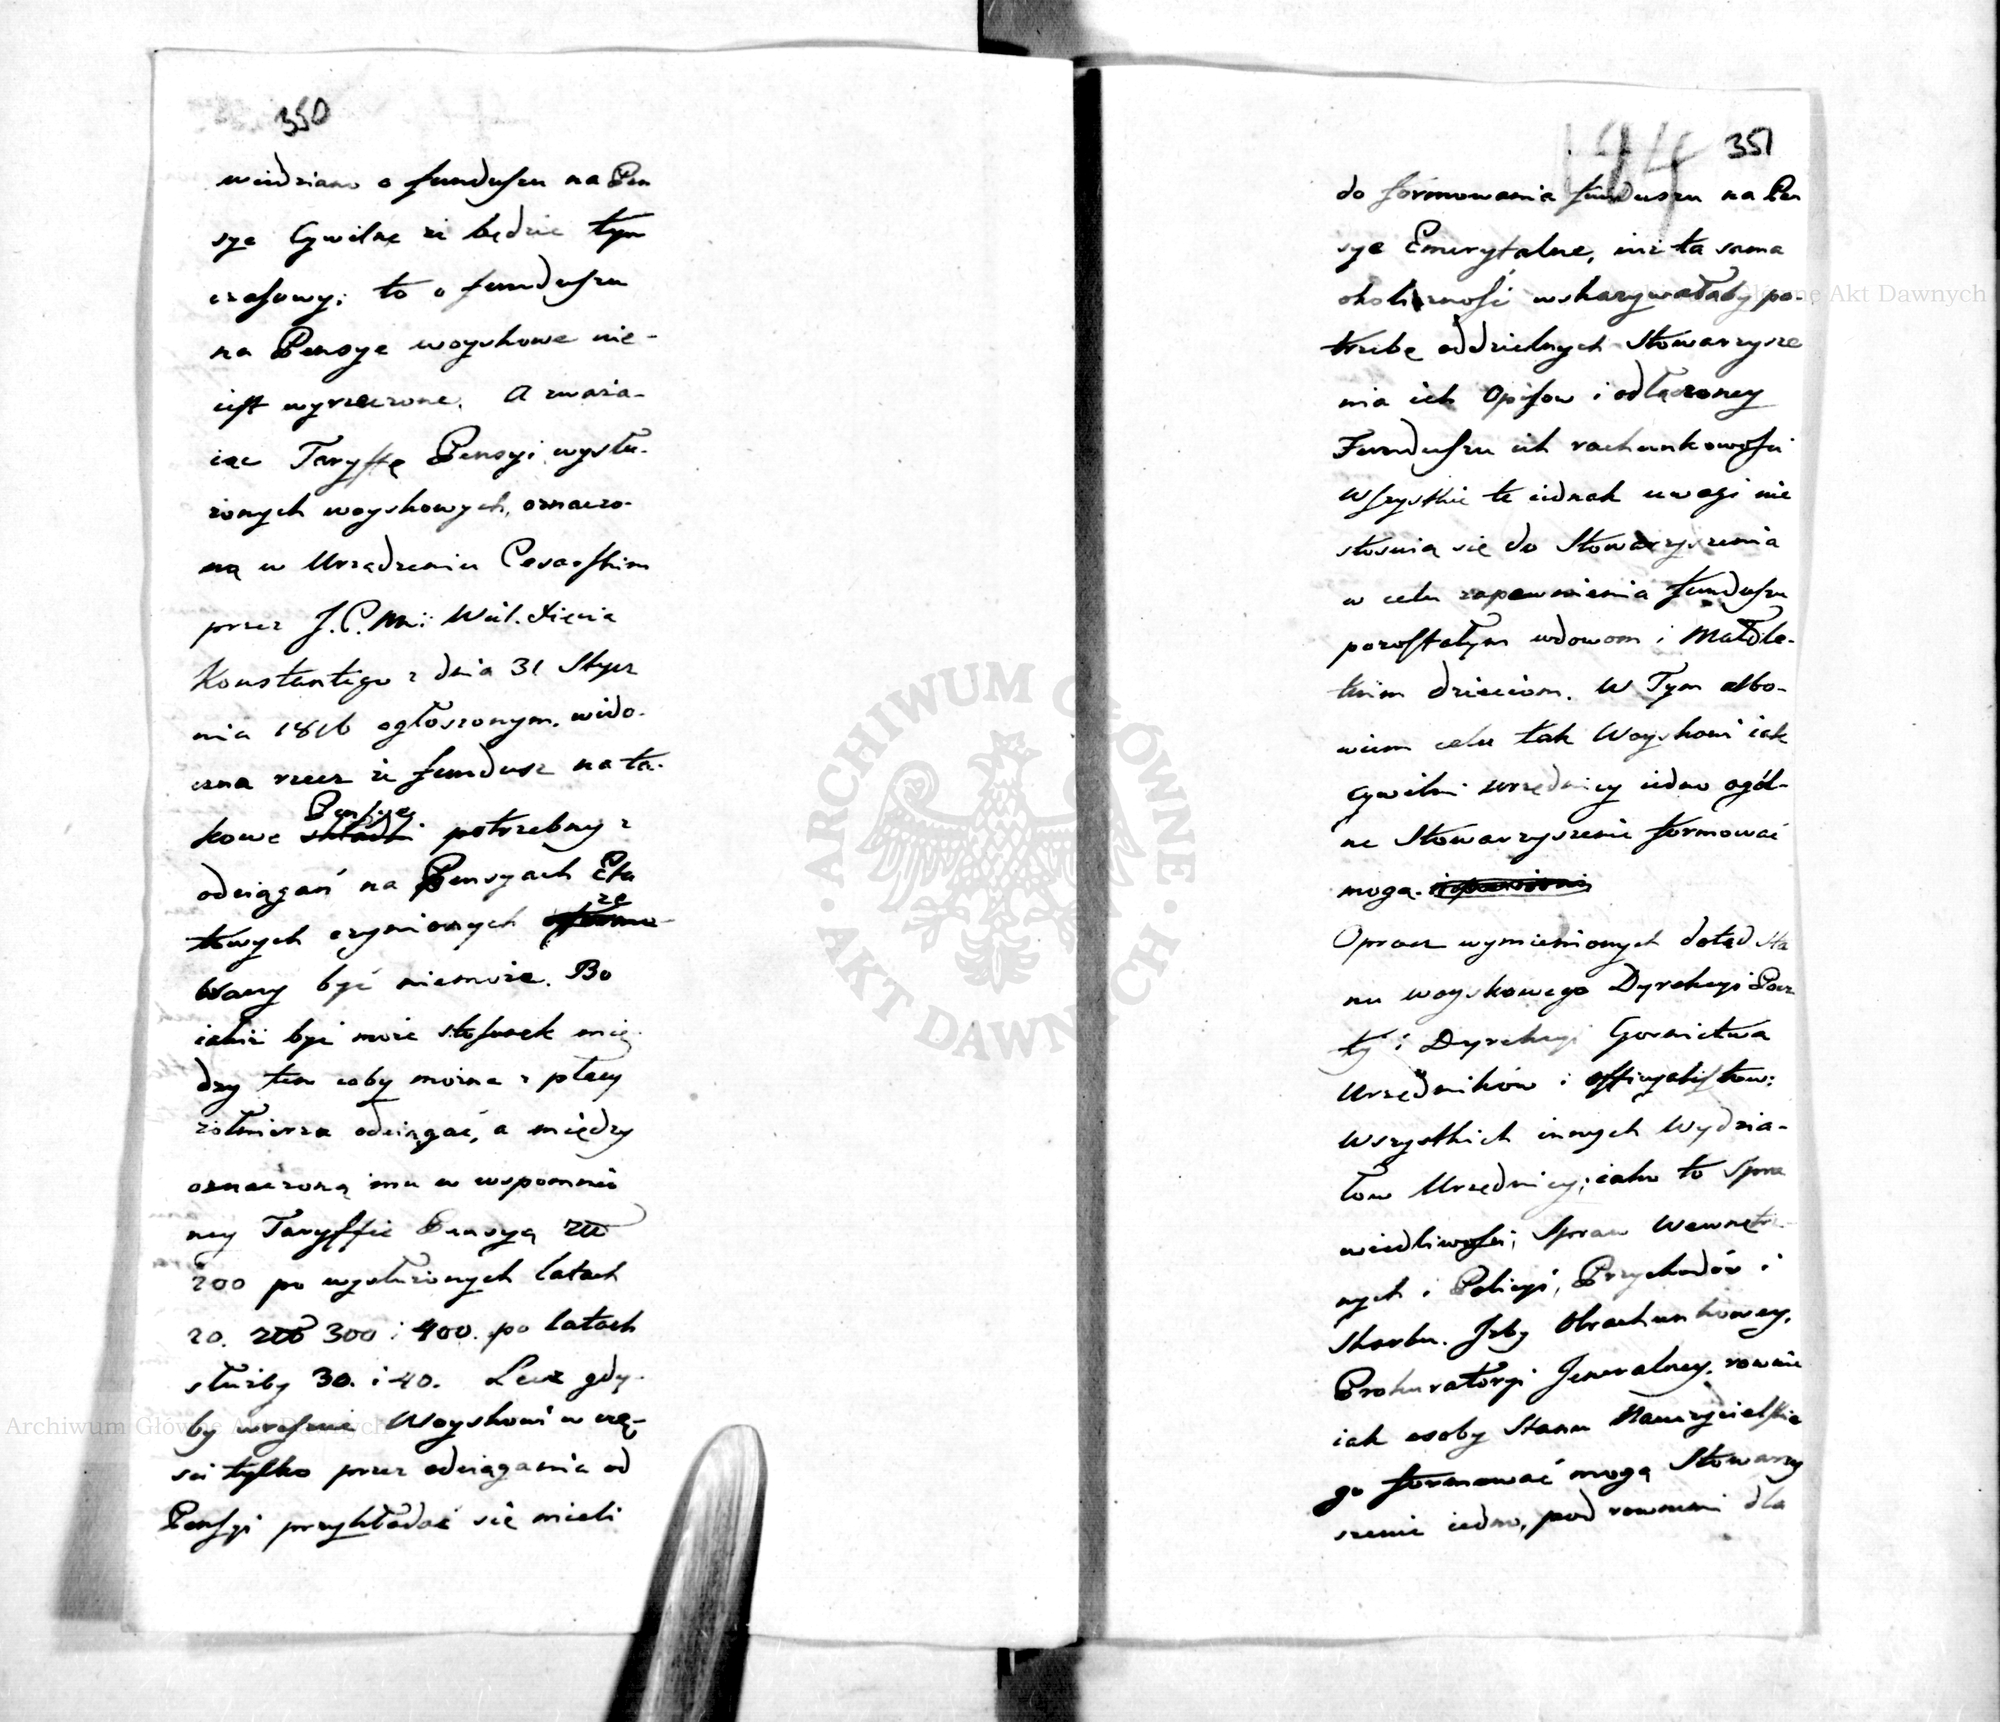 350
wiedziano o funduszu na Pen
sye Cywilne że będzie tym
czasowy; to o funduszu
na Pensye woyskowe nie-
iest wyrzeczone. A zważa-
iąc Taryffę Pensyi wysłu-
żonych woyskowych, oznaczo-
ną w Urządzeniu Cesarskim
przez J. C. M: Wiel. Xięcia
Konstantego z dnia 31 Stycz
nia 1816 ogłoszonym, wido-
czna rzecz że fundusz na ta-
kowe Pensye potrzebny z
odciągań na Pensyach Eta
towych czynionych ze-
brany być niemoże. Bo
iakiż być może stosunek mię-
dzy tem coby można z płacy
żołnierza odciągać, a między
oznaczoną mu w wspomnio
ney Taryffie Pensyą Złł
200 po wysłużonych latach
20. Złł 300 i 400. po latach
służby 30. i 40. Lecz gdy-
by wreszcie Woyskowi w czę-
ści tylko przez odciągania od
Pensyi przykładać się mieli
194 351
do formowania funduszu na Pen
sye Emerytalne, inż ta sama
okoliczność wskazywałaby po-
trzebę oddzielnych Stowarzysze
nia ich Opisow i odłączoney
Funduszu ich rachunkowości
Wszystkie te iednak uwagi nie
stosuią się do Stowarzyszenia
w celu zapewnienia funduszu
pozostałym wdowom i Małole-
tnim dzieciom. W Tym albo-
wiem celu tak Woyskowi iak
Cywilni urzędnicy iedno ogól-
ne Stowarzyszenie formować
mogą.
Oprocz wymienionych dotąd Sta
nu woyskowego Dyrekcyi Pocz
ty i Dyrekcyi Gornictwa
Urzędników i officyalistow:
Wszystkich innych Wydzia-
łow Urzędnicy; iako to Spra
wiedliwości; Spraw Wewnętrz-
nych i Policyi, Przychodów i
Skarbu. Izby Obrachunkowey,
Prokuratoryi Jeneralney, rownie
iak osoby Stanu Nauczycielskie
go formować mogą Stowarzy
szenie iedno, pod rownemi dla
ARCHIWUM GŁÓWNE AKT DAWNYCH
Archiwum Główne Akt Dawnych